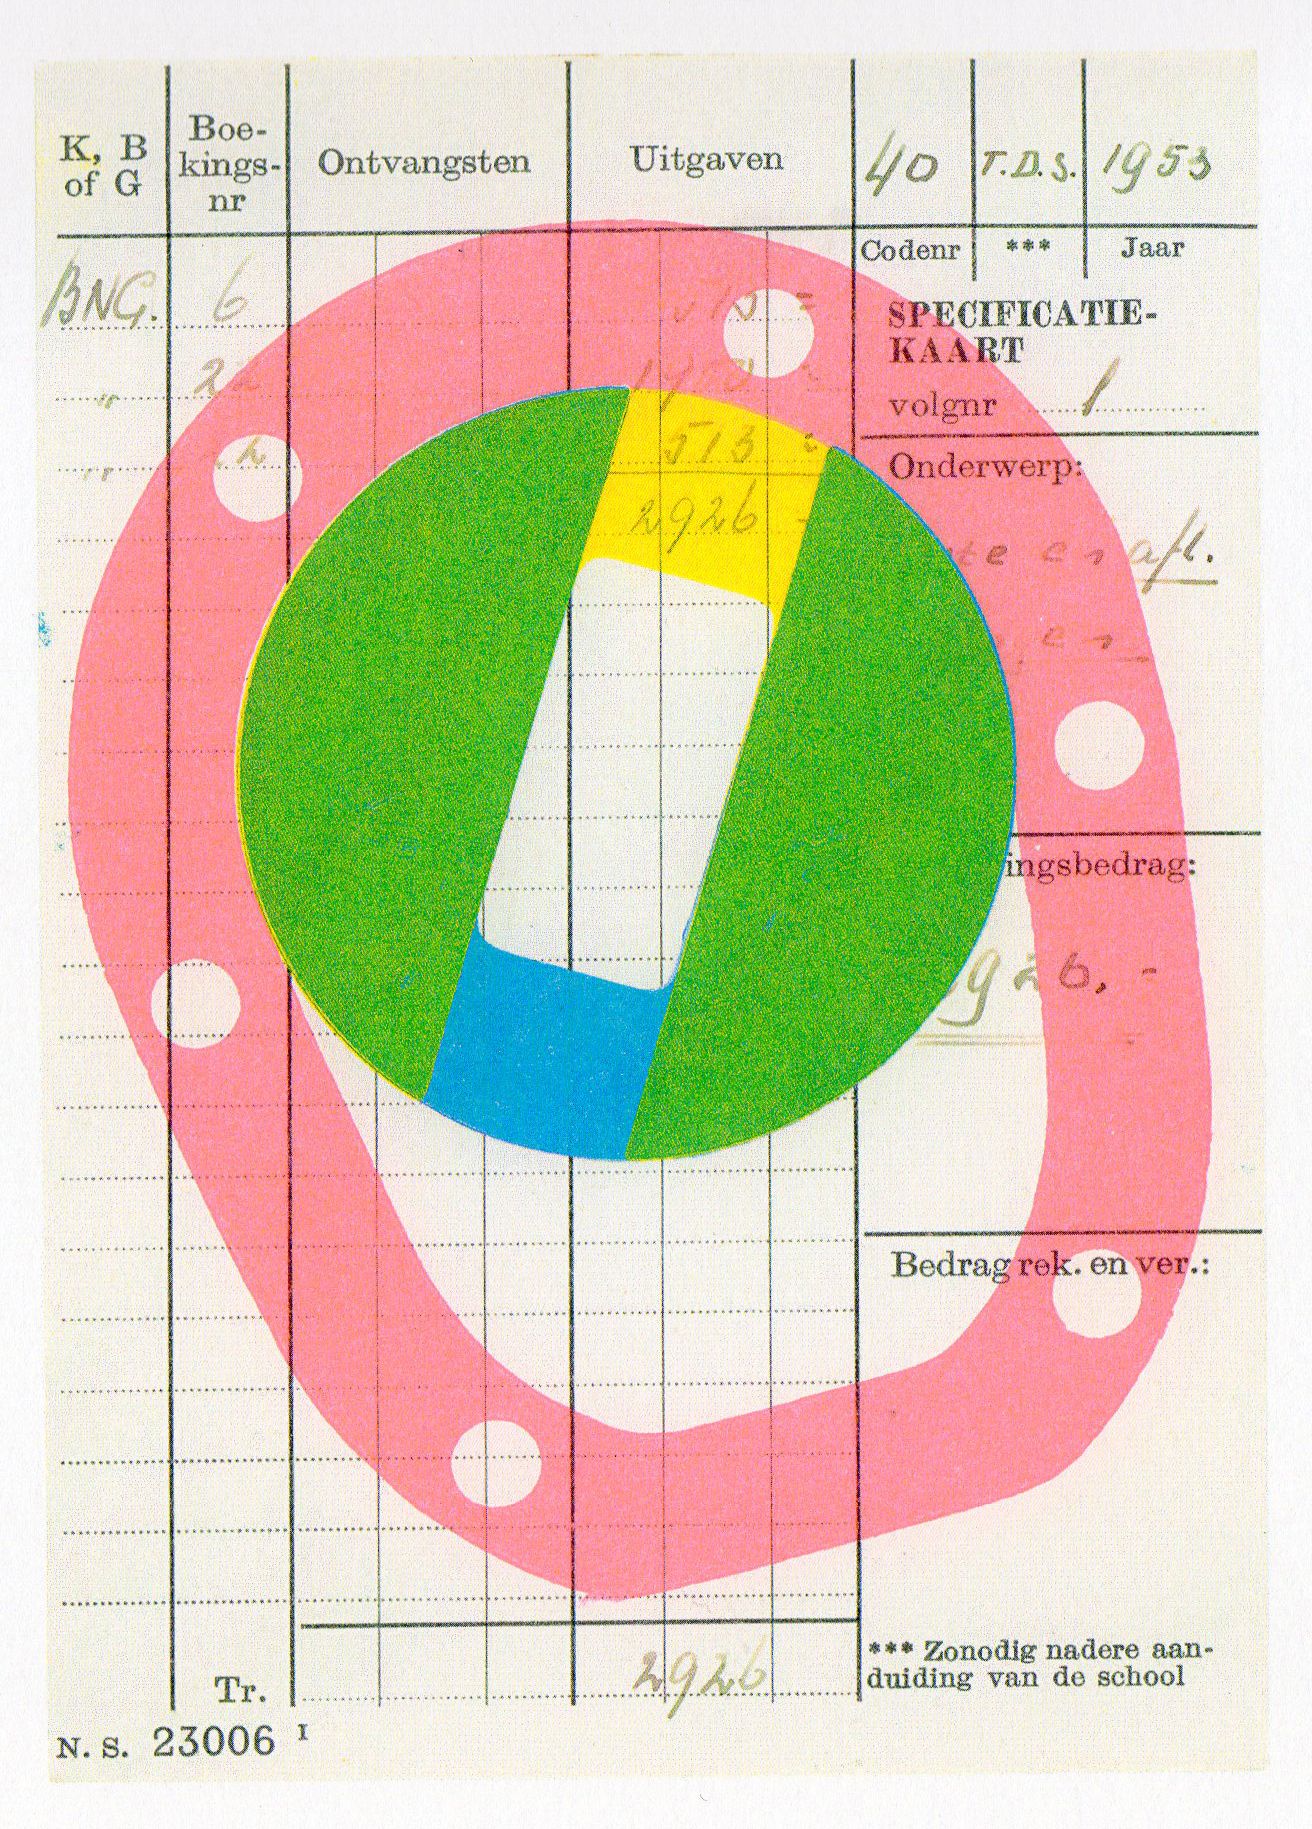 K, B of G
Boe-
kings-
nr
Ontvangsten
Uitgaven
40
T.D.S.
1953
Codenr
***
Jaar
BNG. 6
SPECIFICATIE-
KAART
volgnr 1
513
Onderwerp:
2926 -
afl.
ingsbedrag:
926, -
Bedrag rek. en ver.:
2926
*** Zonodig nadere aan-
duiding van de school
Tr.
N. S. 23006 I